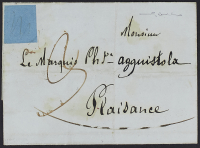 Monsieur
Le Marquis Ph.pe agguistola
Plaisance